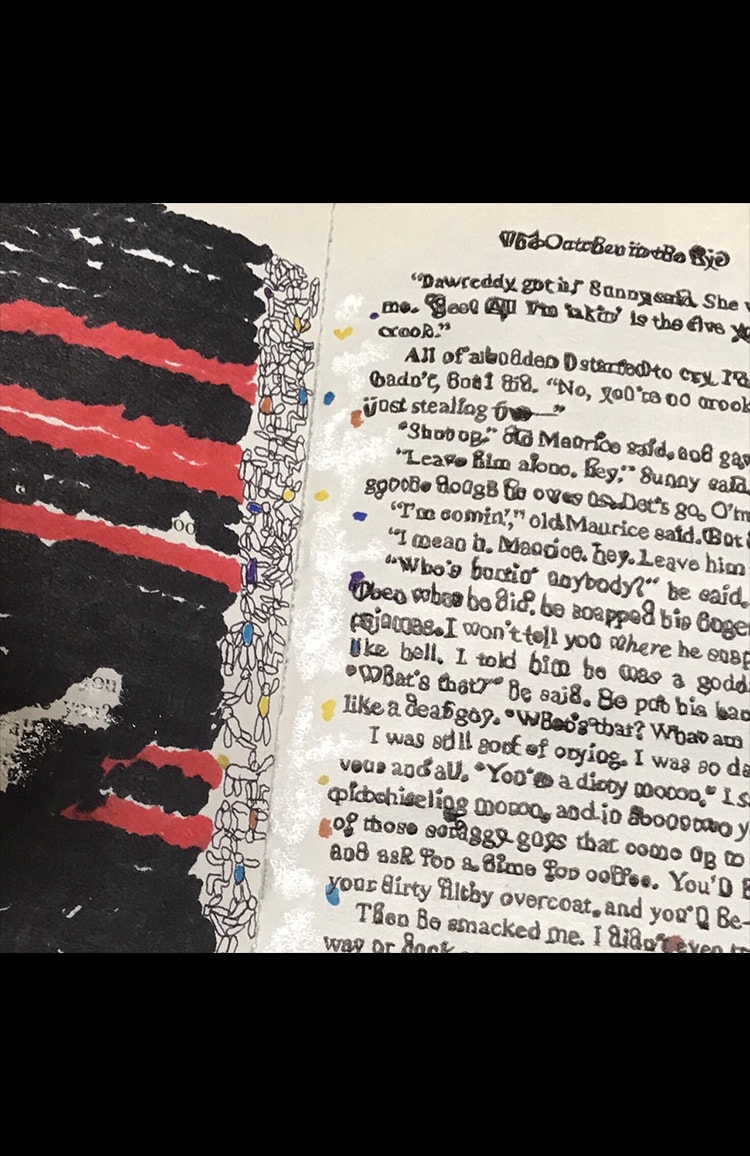 oo
ou
you?
"I already got it," Sunny said. She
me. All I'm takin' is the five
crook."
All of a sudden I started to cry. I'd
hadn't, but I did. "No, you're no crook
just stealing five—"
"Shut up," old Maurice said, and gav
"Leave him alone, hey," Sunny said.
he owes us. Let's go. C'm
"I'm comin'," old Maurice said. But
"I mean it, Maurice, hey. Leave him
"Who's hurtin' anybody?" he said,
Then what he did, he snapped his finger
pajamas. I won't tell you where he snap
like hell. I told him he was a godd
"What's that?" he said. He put his han
like a deaf guy. "What's that? What am
I was still sort of crying. I was so da
vous and all. "You're a dirty moron," I s
moron, and in about two y
of those scraggy guys that come up to
and ask for a dime for coffee. You'll
your dirty filthy overcoat, and you'll be—
Then he smacked me. I didn't even tr
way or duck